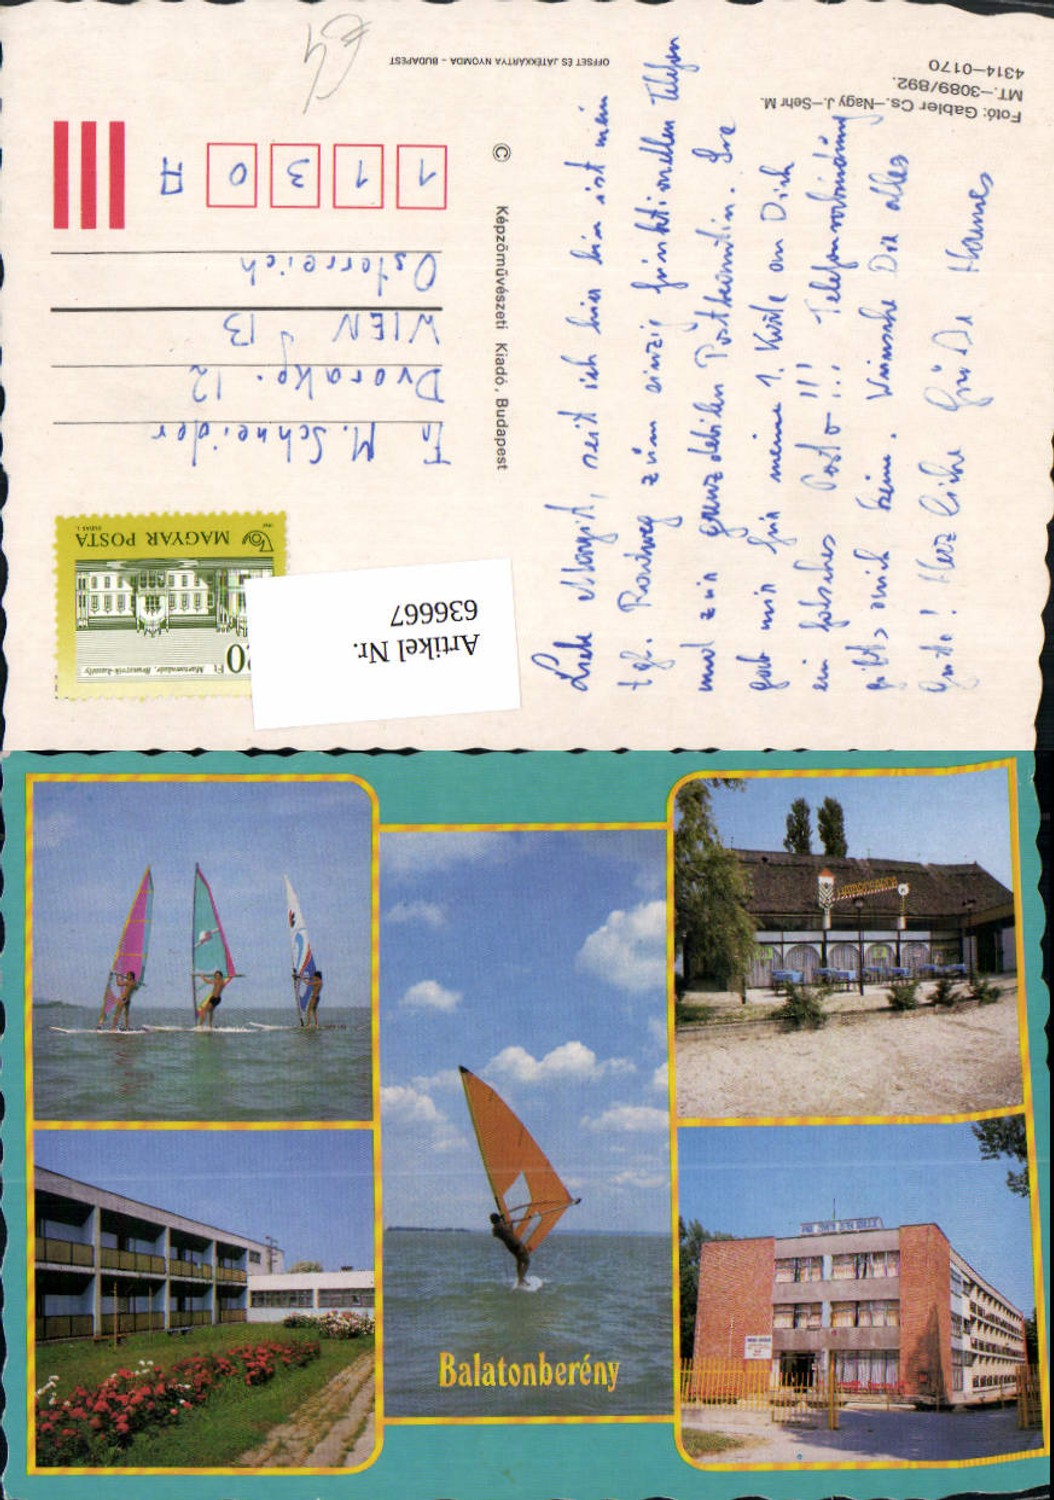 Fotó: Gabler Cs.–Nagy J.–Sehr M.
MT.–3089/892.
4314–0170
OFFSET ÉS JÁTÉKKÁRTYA NYOMDA – BUDAPEST
©
Képzőművészeti Kiadó, Budapest
Liebe Margit, seit ich hier bin ist mein
tgl. zum einzig funktionellen Telefon
und zur grenzdebilen Postbeamtin. Sie
gab mir für meine 1. Karte an Dich
ein falsches Porto!!! Telefon
gibt's auch keine. Wünsche Dir alles
Gute! Herzliche Grüße Hannes
1 1 3 0
A
Fr M. Schneider
Dvorakg. 12
WIEN 13
Österreich
MAGYAR POSTA
20 Ft
Martonvásár, Brunszvik-kastély
Artikel Nr.
636667
Balatonberény